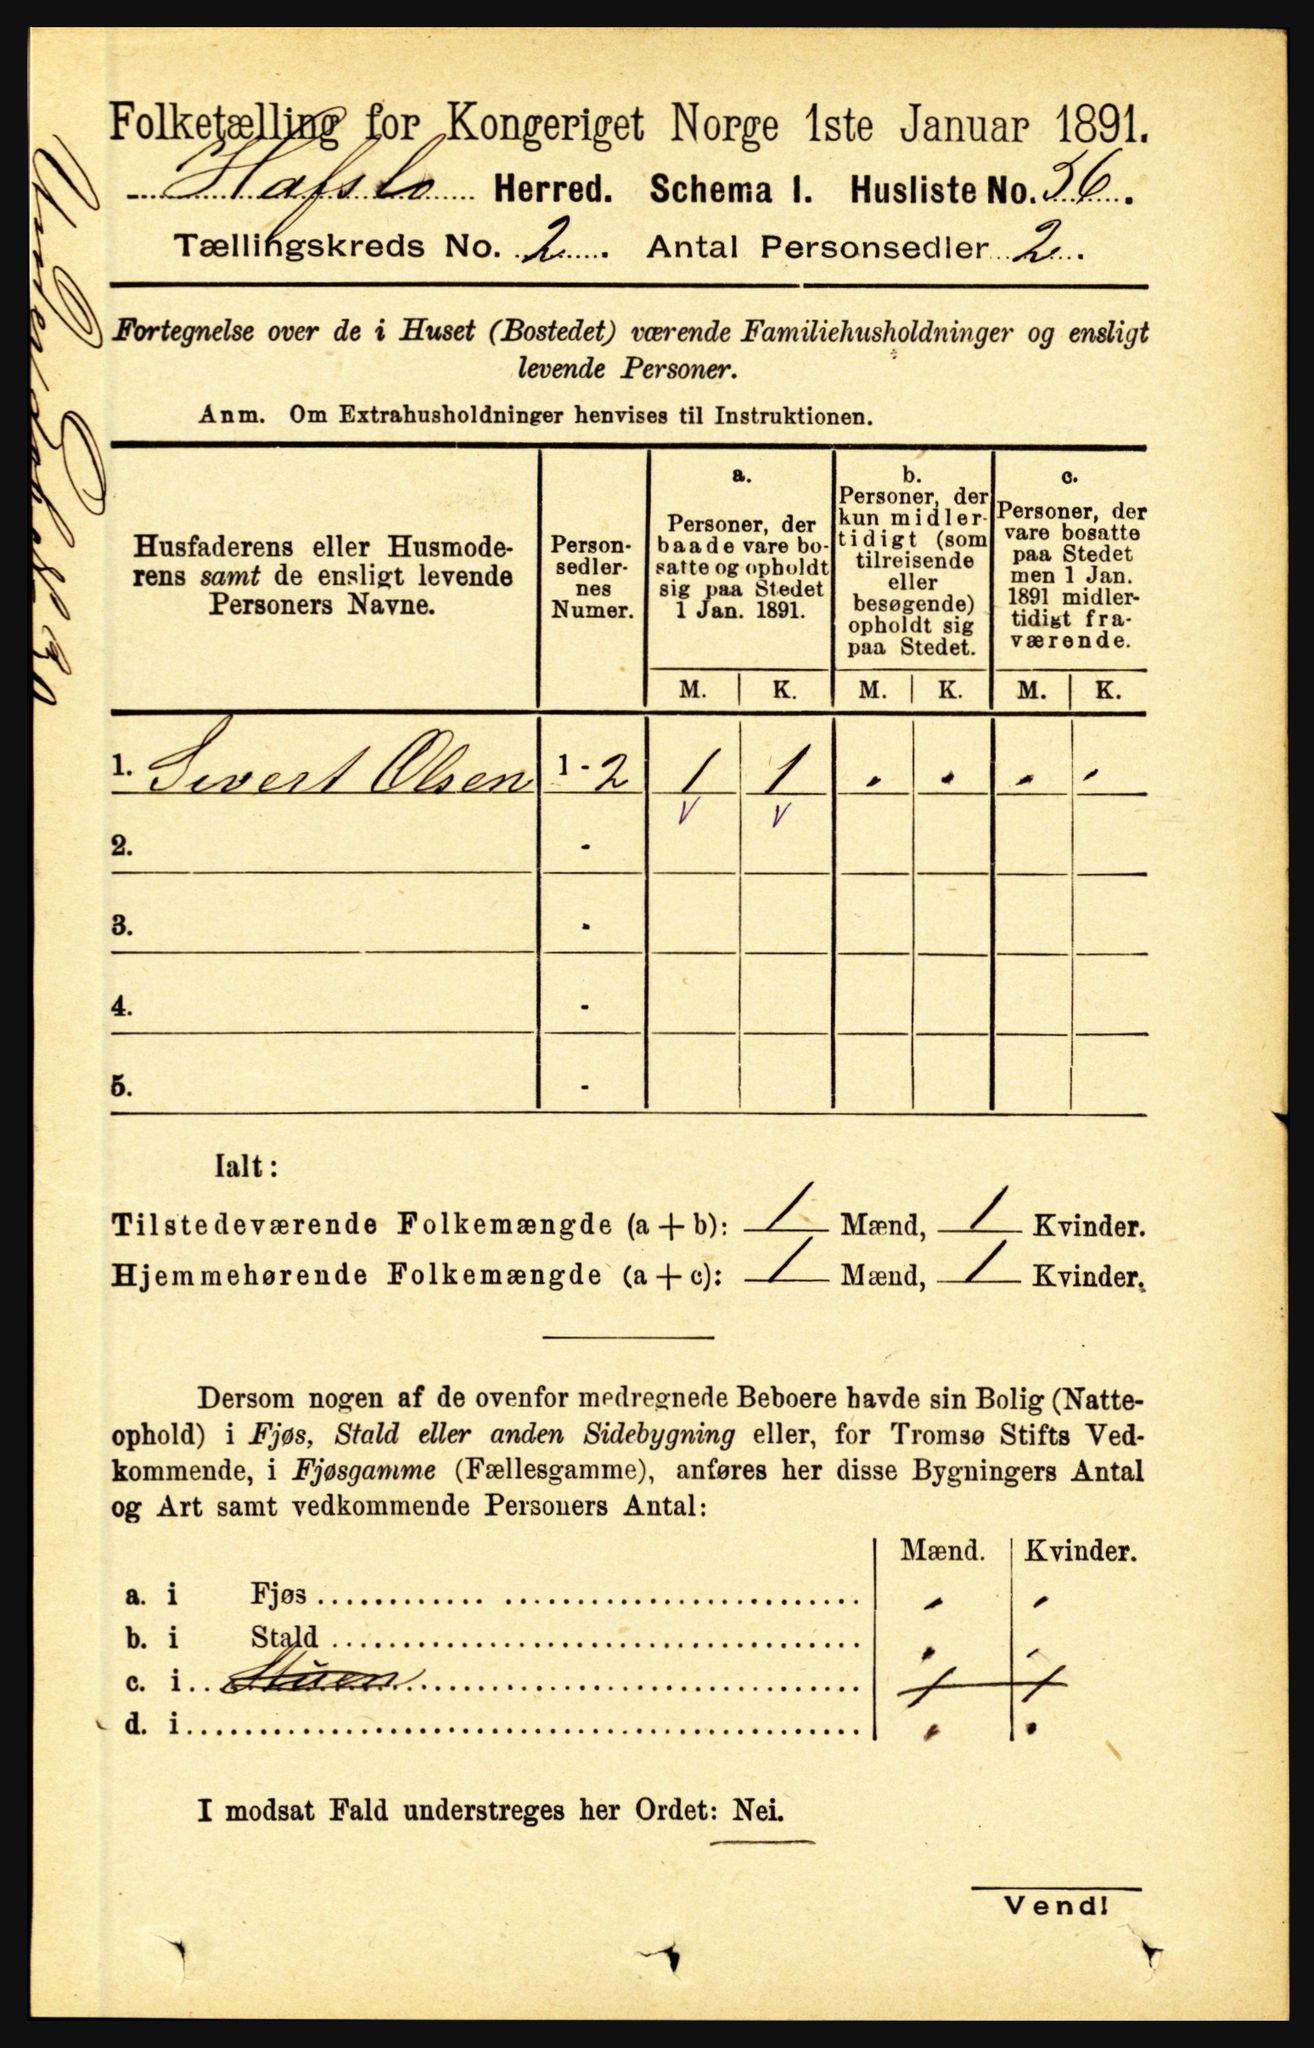 Folketælling for Kongeriget Norge 1ste Januar 1891.
Hafslo Herred. Schema I. Husliste No. 36.
Tællingskreds No. 2. Antal Personsedler 2.
Fortegnelse over de i Huset (Bostedet) værende Familiehusholdninger og ensligt
levende Personer.
Anm. Om Extrahusholdninger henvises til Instruktionen.
Husfaderens eller Husmode-
rens samt de ensligt levende
Personers Navne.
Person-
sedler-
nes
Numer.
a.
Personer, der
baade vare bo-
satte og opholdt
sig paa Stedet
1 Jan. 1891.
b.
Personer, der
kun midler-
tidigt (som
tilreisende
eller
besøgende)
opholdt sig
paa Stedet.
c.
Personer, der
vare bosatte
paa Stedet
men 1 Jan.
1891 midler-
tidigt fra-
værende.
M. K. M. K. M. K.
1. Sivert Olsen 1 - 2 1 1 . . . .
2. -
3. -
4. -
5. -
Ialt:
Tilstedeværende Folkemængde (a + b): 1 Mænd, 1 Kvinder.
Hjemmehørende Folkemængde (a + c): 1 Mænd, 1 Kvinder.
Dersom nogen af de ovenfor medregnede Beboere havde sin Bolig (Natte-
ophold) i Fjøs, Stald eller anden Sidebygning eller, for Tromsø Stifts Ved-
kommende, i Fjøsgamme (Fællesgamme), anføres her disse Bygningers Antal
og Art samt vedkommende Personers Antal:
Mænd. Kvinder.
a. i Fjøs
b. i Stald
c. i Stuen
d. i
I modsat Fald understreges her Ordet: Nei.
Vend!